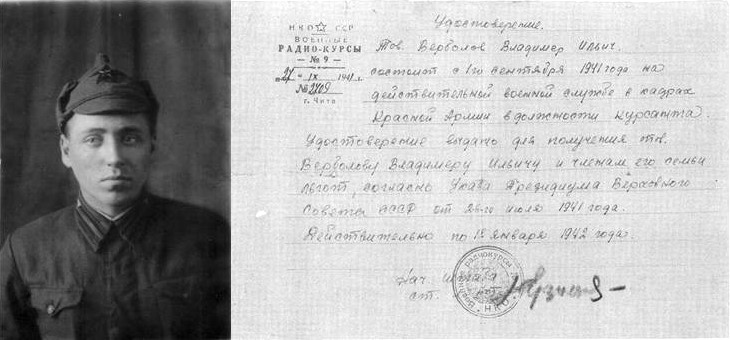 Удостоверение.
НКО СССР
ВОЕННЫЕ
РАДИО-КУРСЫ
— № 9 —
"27" IX 1941 г.
№ 2709
г. Чита
Тов. Верволов Владимер Ильич.
состоит с 1го сентября 1941 года на
действительной военной службе в кадрах
Красной Армии в должности курсанта.
Удостоверение выдано для получения тов.
Верволову Владимеру Ильичу и членам его семьи
льгот, согласно Указа Президиума Верховного
Совета СССР от июля 1941 года.
Действительно по 1е января 1942 года.
Нач. штаба
ст.
Военные радиокурсы
НКО